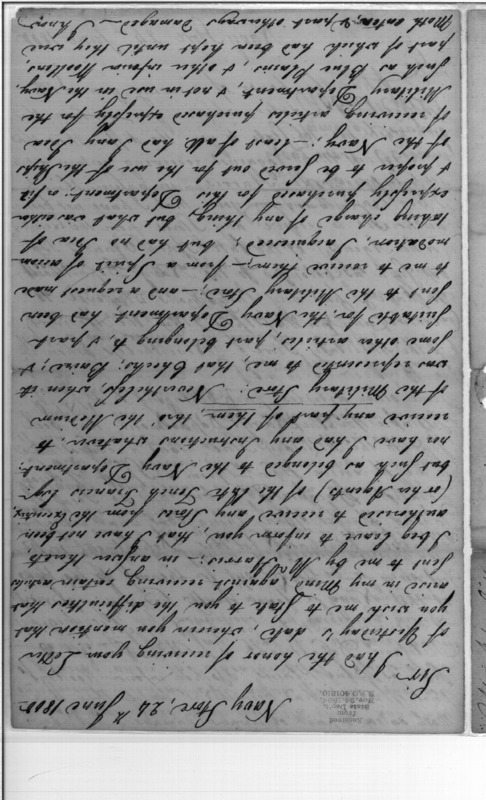 Navy Store, 24th June 1800
Accident
From
State Dep't.
Nov. 24, 1904
Sir
I had the honor of receiving your Letter
of Yesterday's date, wherein you mention that
you wish me to State to you the difficulties that
arise in my Mind against receiving certain articles
sent to me by Mr Harris; — in answer thereto
I beg leave to inform you, that I have not been
authorised to receive any Stores from the
(or his Agents) of the late Tench Francis Esqr.
but such as belonged to the Navy Department;
nor have I had any Instructions whatever, to
receive any part of them, thro' the Medium
of the Military Store: Nevertheless when it
was represented to me, that Checks, Baize, &
some other articles, part belonging to, & part
suitable for, the Navy Department, had been
sent to the Military Store; — and a request made
to me to receive them; — from a Spirit of accom-
modation, I acquiesced; but had no Idea of
taking charge of any thing, but what was either
expressly purchased for this Department; or fit
& proper to be served out for the use of the Ships
of the Navy; — least of all had I any Idea
of receiving articles purchased expressly for the
Military Department, & not in use in the Navy,
such as Blue Plains, & other inferior Woollens,
part of which had been kept until they were
Moth eaten, & part otherways Damaged — I now